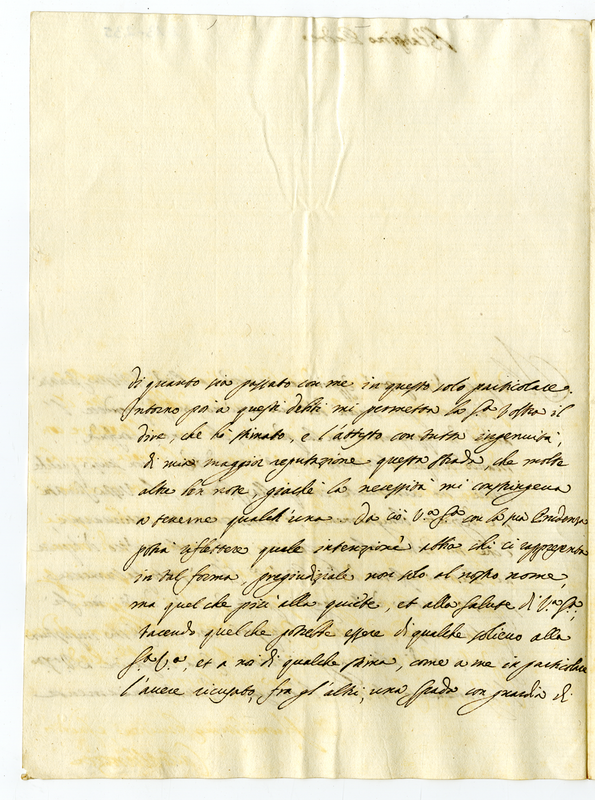 di quanto sia passato con me in questo solo particolare.
Intorno poi à questi debiti mi permetta la S.a Vostra il
dire, che hò stimato, e l'attesto con tutta ingenuità,
di mia maggior reputazione questa strada, che molte
altre ben note, giache la necessità mi constringeva
a tenerne qualch'una. Da ciò V.a S.a con la sua Prudenza
potrà riflettere quale intenzione abbia chi ci rappresenta
in tal forma, pregiudiziale non solo al nostro nome,
ma quel che più alla quiete, et alla salute di V.a S.a,
tacendo quel che potrebbe essere di qualche solievo alla
S.a V.a, et a noi di qualche stima, come a me in particolare
l'avere ricusato, fra gl'altri, una spada con guardia di